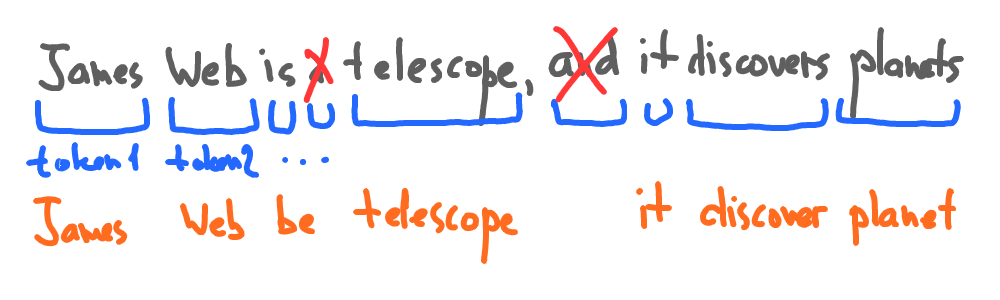 James Web is a telescope, and it discovers planets
token1 token2 ...
James Web be telescope it discover planet